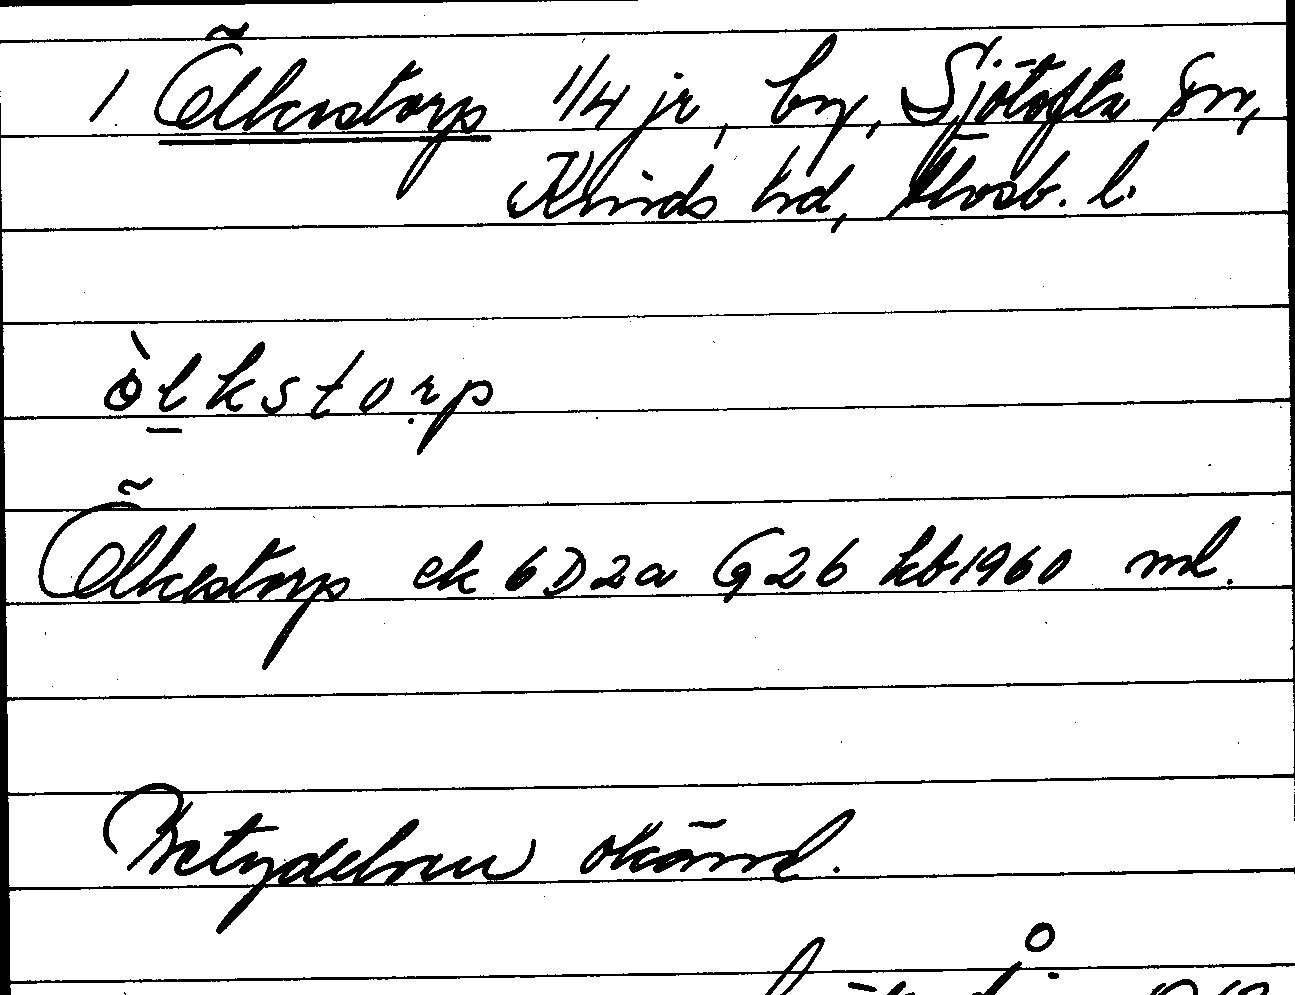 1 Ölkestorp 1/4 jr, by, Sjötofta sn,
Kinds hd, Älvsb. l.
ò̱lkstorp
Ölkestorp ek 6D2a G26 kb1960 ml.
Betydelsen okänd.